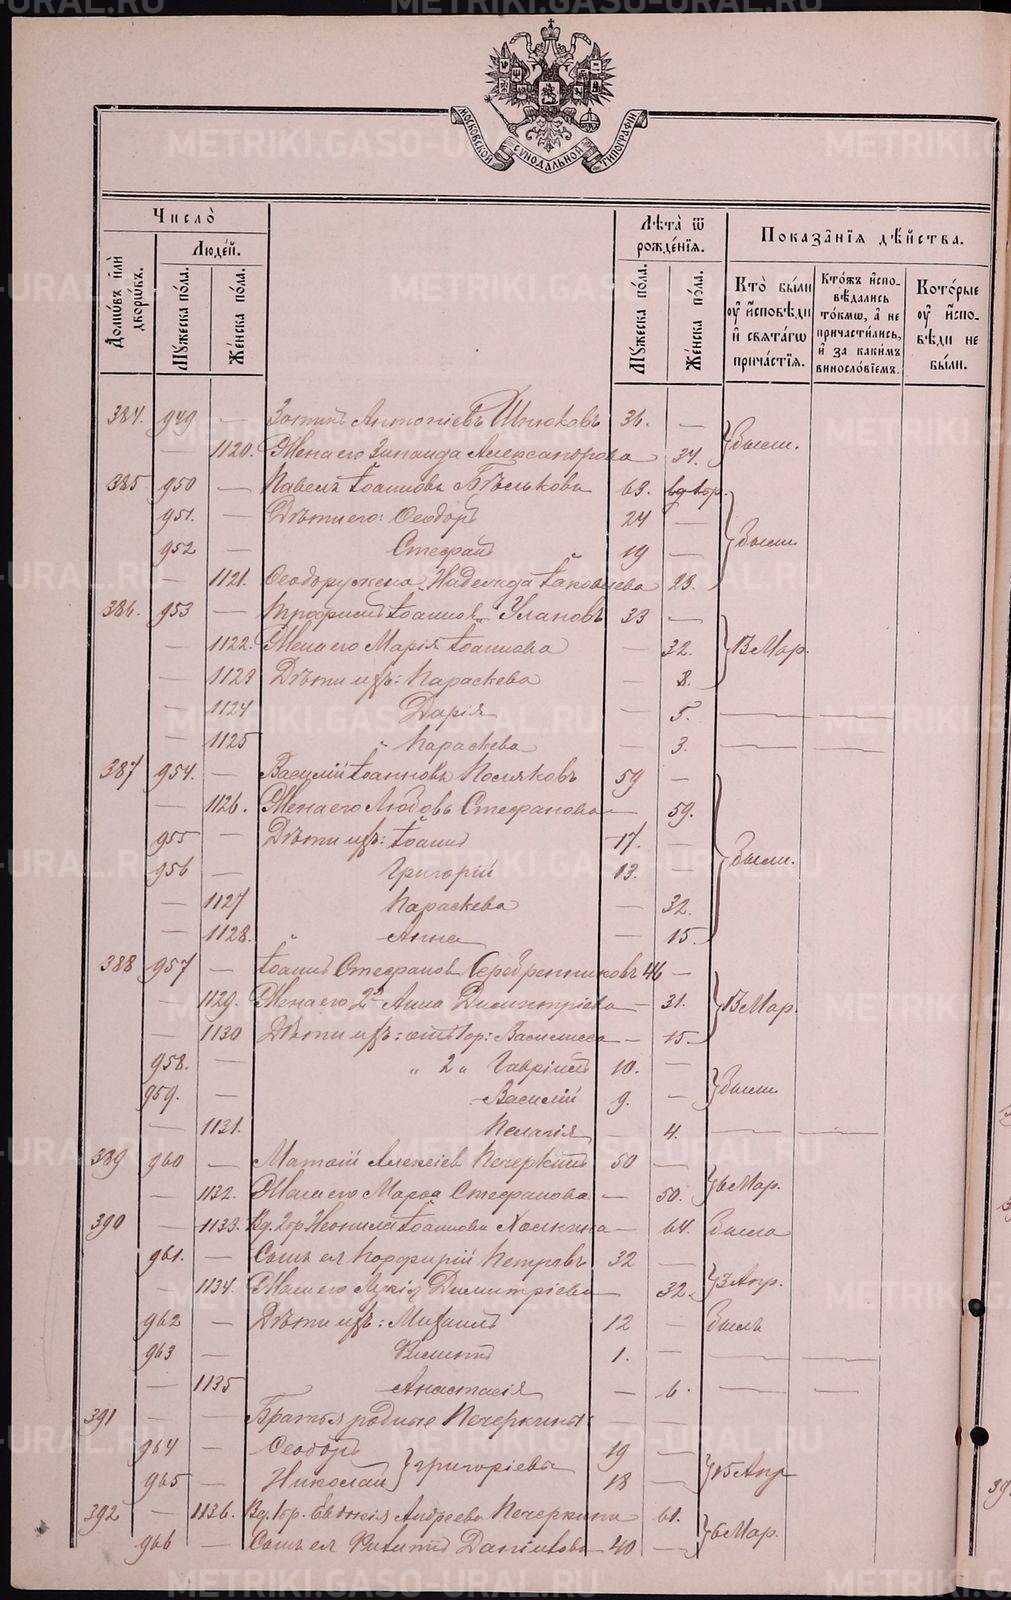 METRIKI.GASO-URAL.RU
МОСКОВСКОЙ СѴНОДАЛЬНОЙ ТИПОГРАФІИ
Число̀
Людей.
Домѡвъ илѝ дворѡвъ.
Мꙋ́жеска по́ла.
Же́нска по́ла.
Лѣ́та ѿ рожде́нїѧ.
Мꙋ́жеска по́ла.
Же́нска по́ла.
Показа̂нїѧ дѣ́йства.
Кто̀ бы́ли оу҆ и҆сповѣди и҆ свѧта́гѡ прича́стїѧ.
Кто́жъ и҆спо-вѣдались то́кмѡ, а҆ не причасти́лись, и҆ за каки́мъ винословїемъ.
Кото́рые оу҆ и҆спо-вѣди не бы́ли.
384. 949 — Антоніевъ 36. —
— 1120. Жена его Зинаида Александрова 34. были.
385 950 — Павелъ Іоанновъ Бѣльковъ 63. вдвор.
951. — Дѣти его: Ѳеодоръ 24 —
952 — Стефанъ 19 — были
— 1121. Ѳеодору жена Надежда Іаковлева 23.
386. 953 — Трофимъ Іоанновъ Улановъ 33 —
— 1122. Жена его Марія Іоаннова — 32. 13 Мар.
— 1123 Дѣти ихъ: Параскева — 8.
— 1124 Дарія — 5. — —
— 1125 „ Параскева — 3. — —
387 954. — Василій Іоанновъ Посляковъ 59 —
— 1126. Жена его Любовь Стефанова — 59.
955 — Дѣти ихъ: Іоаннъ 17. —
956 — Григорій 13. — были.
— 1127 Параскева — 32.
— 1128. „ Анна — 15.
388 957 — Іоаннъ Стефановъ Серебренниковъ 46 —
— 1129. Жена его 2º Анна Димитріева — 31. 13 Мар.
— 1130 Дѣти ихъ: отъ 1бр: Василисса — 15.
958. — „ 2 „ Гавріилъ 10. —
959. — Василій 9. — были
— 1131. Пелагія 4. — —
389 960 — Матѳій Алексіевъ Печеркинъ 50 —
— 1132. Жена его Марѳа Стефанова — 50. 6 Мар.
390 — 1133. Вд. 1бр. Неонила Іоаннова — 64. Была
961. — Сынъ ея Порфирій Петровъ 32 —
— 1134. Жена его Лукія Димитріева — 32. 3 Апр.
962 — Дѣти ихъ: Михаилъ 12 — Былъ
963 — Филиппъ 1. — — —
— 1135 Анастасія — 6. — —
391 — — Братья родные Печеркины: — —
964 — Ѳеодоръ 19 —
965 — Николай } Григоріевы 18 — 15 Апр
392 — 1136. Вд. 1бр. Евдокія Андреева Печеркина 61.
966 — Сынъ ея Филиппъ Даніиловъ — 40 — 6 Мар.